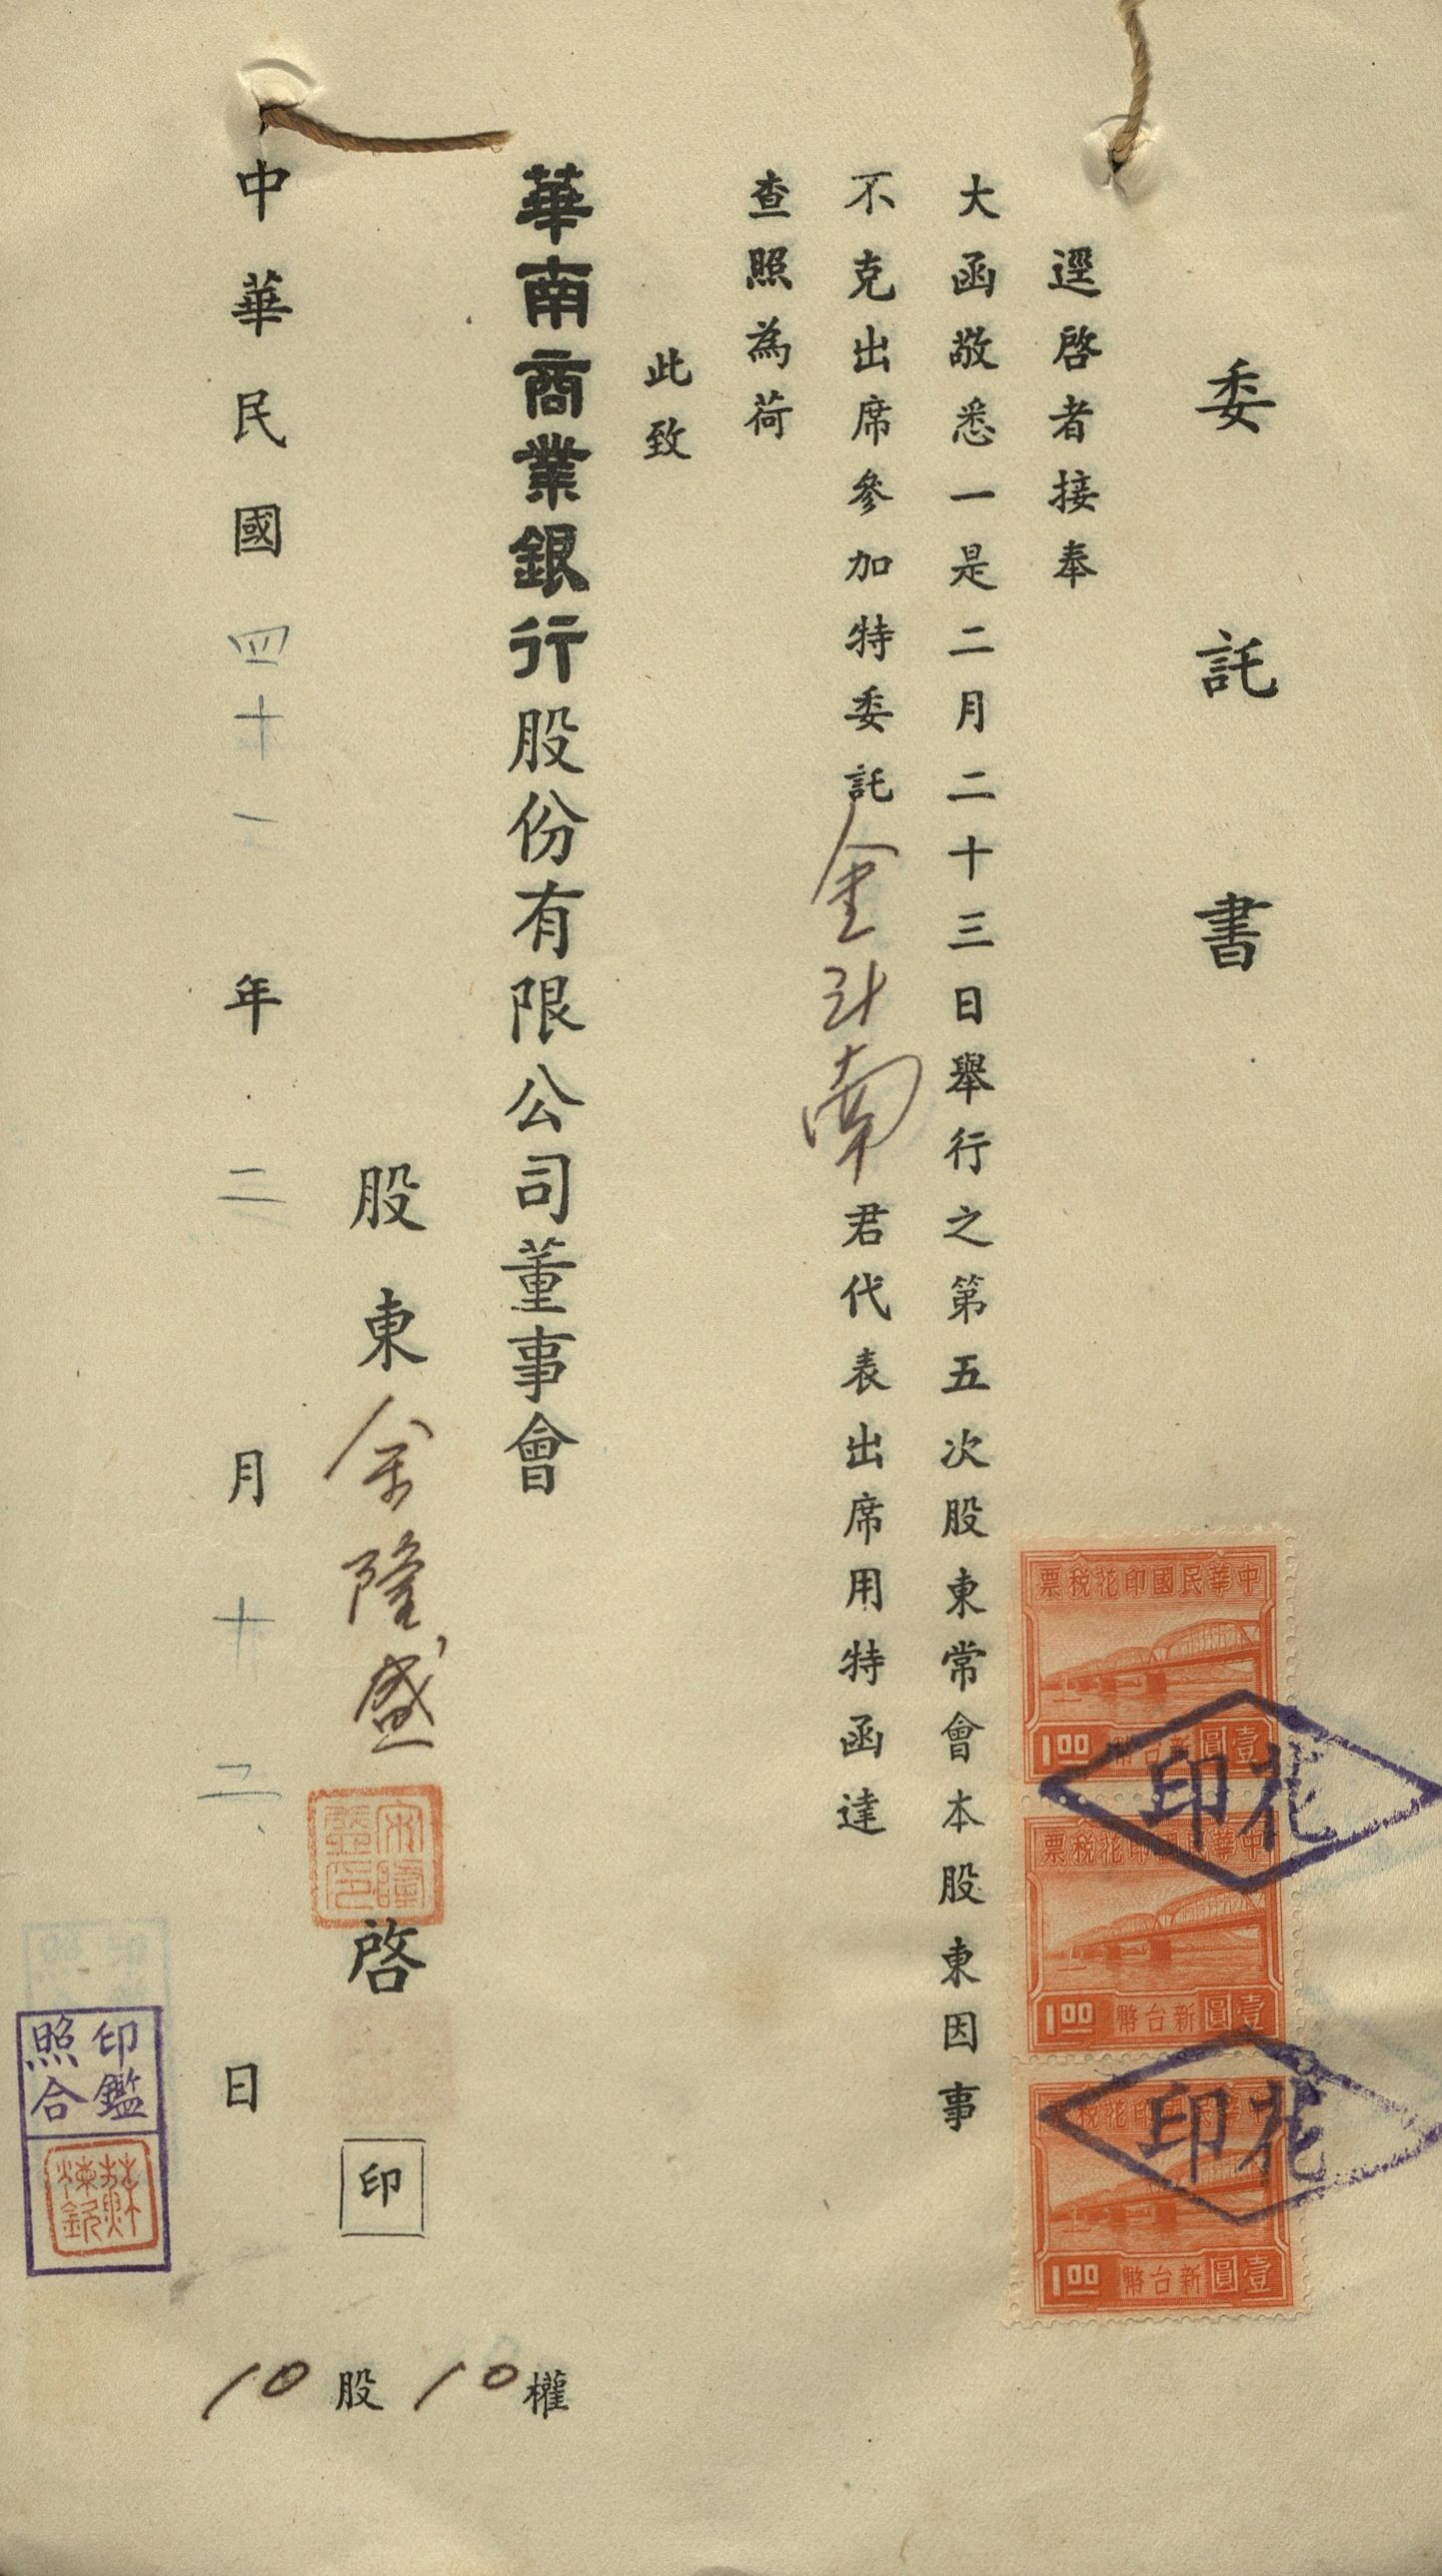 委託書
逕啓者接奉
大函敬悉一是二月二十三日舉行之第五次股東常會本股東因事
不克出席參加特委託金斗南君代表出席用特函達
查照為荷
此致
華南商業銀行股份有限公司董事會
股東余隆盛啓 印
中華民國四十一年二月十二日
10股10權
中華民國印花稅票
1.00 新台幣壹圓
印花
中華民國印花稅票
1.00 新台幣壹圓
印花
中華民國印花稅票
1.00 新台幣壹圓
印鑑
照合